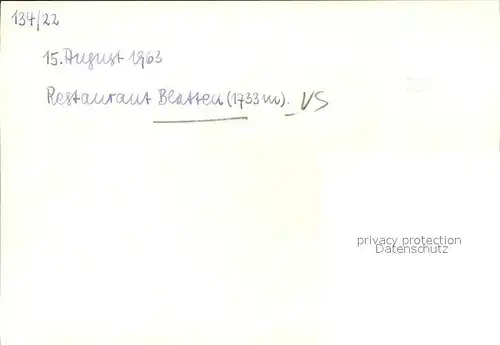 134/22
15. August 1963
Restaurant Blatten (1733 m). VS
privacy protection
Datenschutz